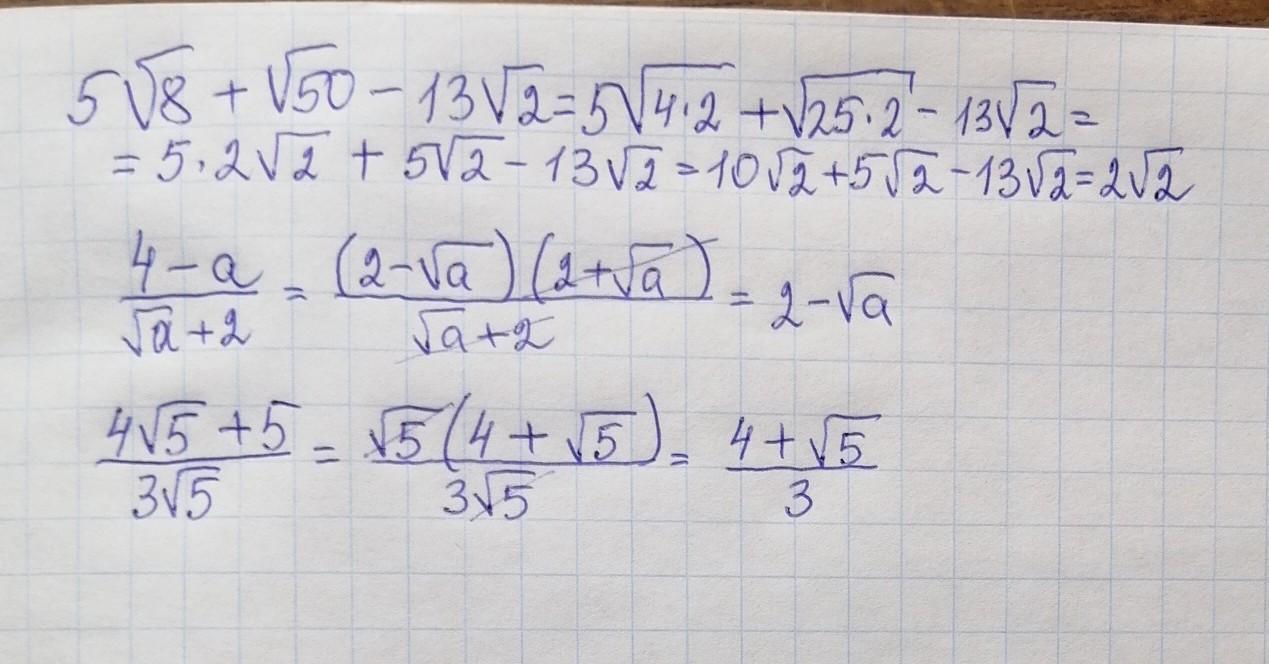 5√8 + √50 − 13√2 = 5√(4·2) + √(25·2) − 13√2 =
= 5·2√2 + 5√2 − 13√2 = 10√2 + 5√2 − 13√2 = 2√2
(4 − a)/(√a + 2) = ((2 − √a)(2 + √a))/(√a + 2) = 2 − √a
(4√5 + 5)/(3√5) = (√5(4 + √5))/(3√5) = (4 + √5)/3